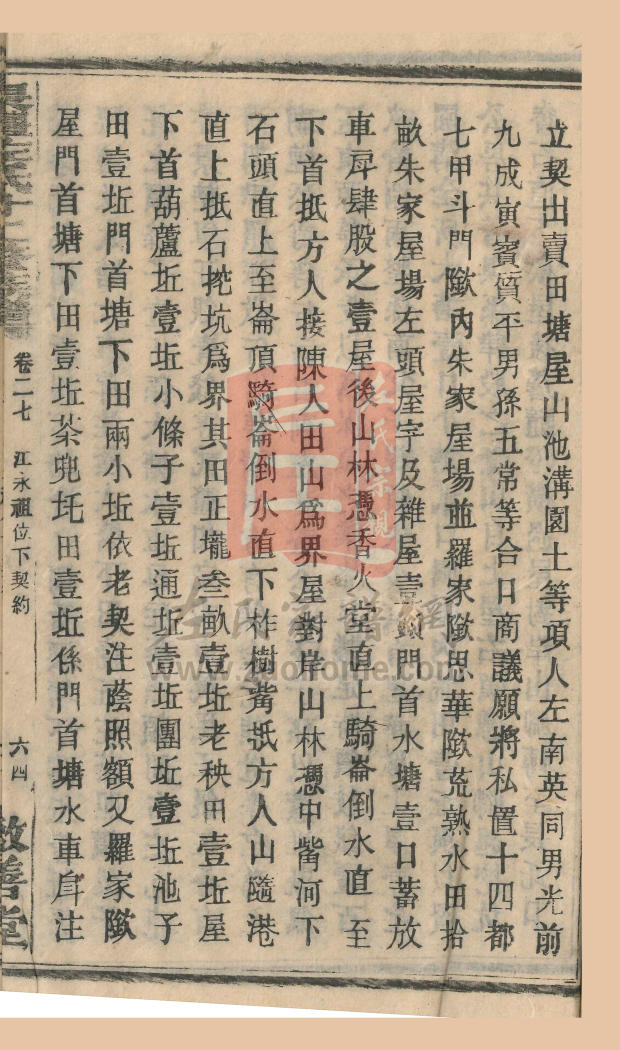 立契出賣田塘屋山池溝園土等項人左南英同男光前
九成寅賓質平男孫五常等合口商議願將私置十四都
七甲斗門陂內朱家屋場並羅家陂思華陂荒熟水田拾
畝朱家屋場左頭屋宇及雜屋壹頭門首水塘壹口蓄放
車戽肆股之壹屋後山林憑香火堂直上騎崙倒水直至
下首抵方人接陳人田山為界屋對岸山林憑中嘴河下
石頭直上至崙頂騎崙倒水直下柞樹嘴抵方人山隨港
直上抵石挖坑為界其田正壠叁畝壹坵老秧田壹坵屋
下首葫蘆坵壹坵小條子壹坵通坵壹坵團坵壹坵池子
田壹坵門首塘下田兩小坵依老契注蔭照額又羅家陂
屋門首塘下田壹坵茶兜圫田壹坵係門首塘水車戽注
左氏十二修族譜
卷二七 江永祖位下契約
六四
敦善堂
左氏宗親
左氏宗譜網
www.zuohome.com